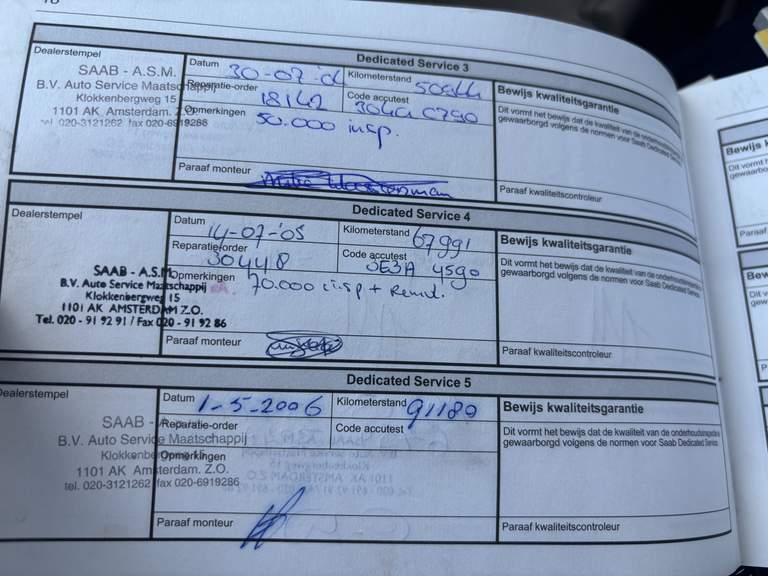 Dedicated Service 3
Dealerstempel
SAAB - A.S.M.
B.V. Auto Service Maatschappij
Klokkenbergweg 15
1101 AK Amsterdam. Z.O.
tel. 020-3121262 fax 020-6919286
Datum 30-07-'04
Kilometerstand
Reparatie-order 18142
Code accutest
Opmerkingen 50.000 insp.
Paraaf monteur
Bewijs kwaliteitsgarantie
Dit vormt het bewijs dat de kwaliteit van de onderhoudsinspectie
gewaarborgd volgens de normen voor Saab Dedicated Service
Paraaf kwaliteitscontroleur
Dedicated Service 4
Dealerstempel
SAAB - A.S.M.
B.V. Auto Service Maatschappij
Klokkenbergweg 15
1101 AK AMSTERDAM Z.O.
Tel. 020 - 91 92 91 / Fax 020 - 91 92 86
Datum 14-07-'05
Kilometerstand 67991
Reparatieorder 30448
Code accutest
Opmerkingen 70.000 insp +
Paraaf monteur
Bewijs kwaliteitsgarantie
Dit vormt het bewijs dat de kwaliteit van de onderhoudsinspectie
gewaarborgd volgens de normen voor Saab Dedicated Service
Paraaf kwaliteitscontroleur
Dedicated Service 5
Dealerstempel
SAAB -
B.V. Auto Service Maatschappij
1101 AK Amsterdam. Z.O.
tel. 020-3121262 fax 020-6919286
Datum 1-5-2006
Kilometerstand 91180
Reparatie-order
Code accutest
Opmerkingen
Paraaf monteur
Bewijs kwaliteitsgarantie
Dit vormt het bewijs dat de kwaliteit van de onderhoudsinspectie
gewaarborgd volgens de normen voor Saab Dedicated Service
Paraaf kwaliteitscontroleur